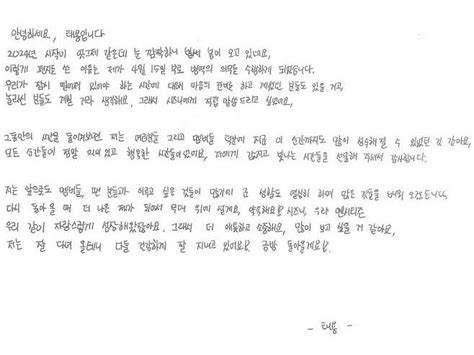 안녕하세요, 태용입니다
2024년 시작이 엊그제 같은데 눈 깜짝하니 벌써 봄이 오고 있네요,
이렇게 편지를 쓴 이유는 제가 4월 15일 부로 병역의 의무를 수행하게 되었습니다.
우리가 잠시 떨어져 있어야 하는 시간에 대해 마음의 준비를 하고 계셨던 분들도 있을 거고,
놀라신 분들도 계실 거라 생각해요, 그래서 시즈니에게 직접 말씀드리고 싶었어요,
그동안의 시간을 돌이켜보면 저는 여러분들 그리고 멤버들 덕분에 지금 이 순간까지도 많이 성장해 올 수 있었던 것 같아요,
모든 순간들이 정말 의미있고 행복한 시간들이었어요, 저에게 값지고 빛나는 시간들을 선물해 주셔서 감사합니다.
저는 앞으로도 멤버들, 팬 분들과 이루고 싶은 것들이 많기에 군 생활도 열심히 하며 많은 것들을 배워 오겠습니다,
다시 돌아올 때 더 나은 제가 되어서 무대 위에 설게요, 약속해요! 시즈니, 우리 엔시티즌
우리 같이 자랑스럽게 성장해왔잖아요. 그래서 더 애틋하고 소중해요, 많이 보고 싶을 거 같아요,
저는 잘 다녀 올테니 다들 건강하게 잘 지내고 있어요! 금방 돌아올게요!
- 태용 -